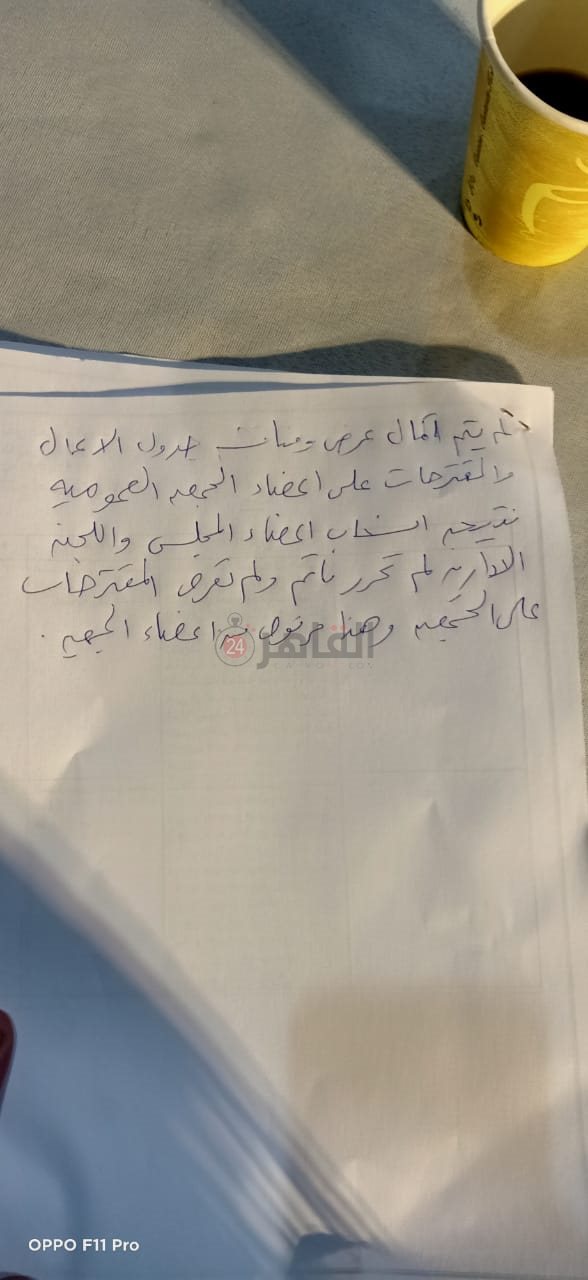 لم يتم اكمال عرض ومناقشة جدول الاعمال
والمقترحات على اعضاء الجمعيه العموميه
نتيجه انسحاب اعضاء المجلس واللجنه
الاداريه لم تحرر ولم تعرض المقترحات
على الجمعيه وهذا مرفوض من اعضاء الجمعيه .
القاهرة 24
CAIRO24.COM
OPPO F11 Pro